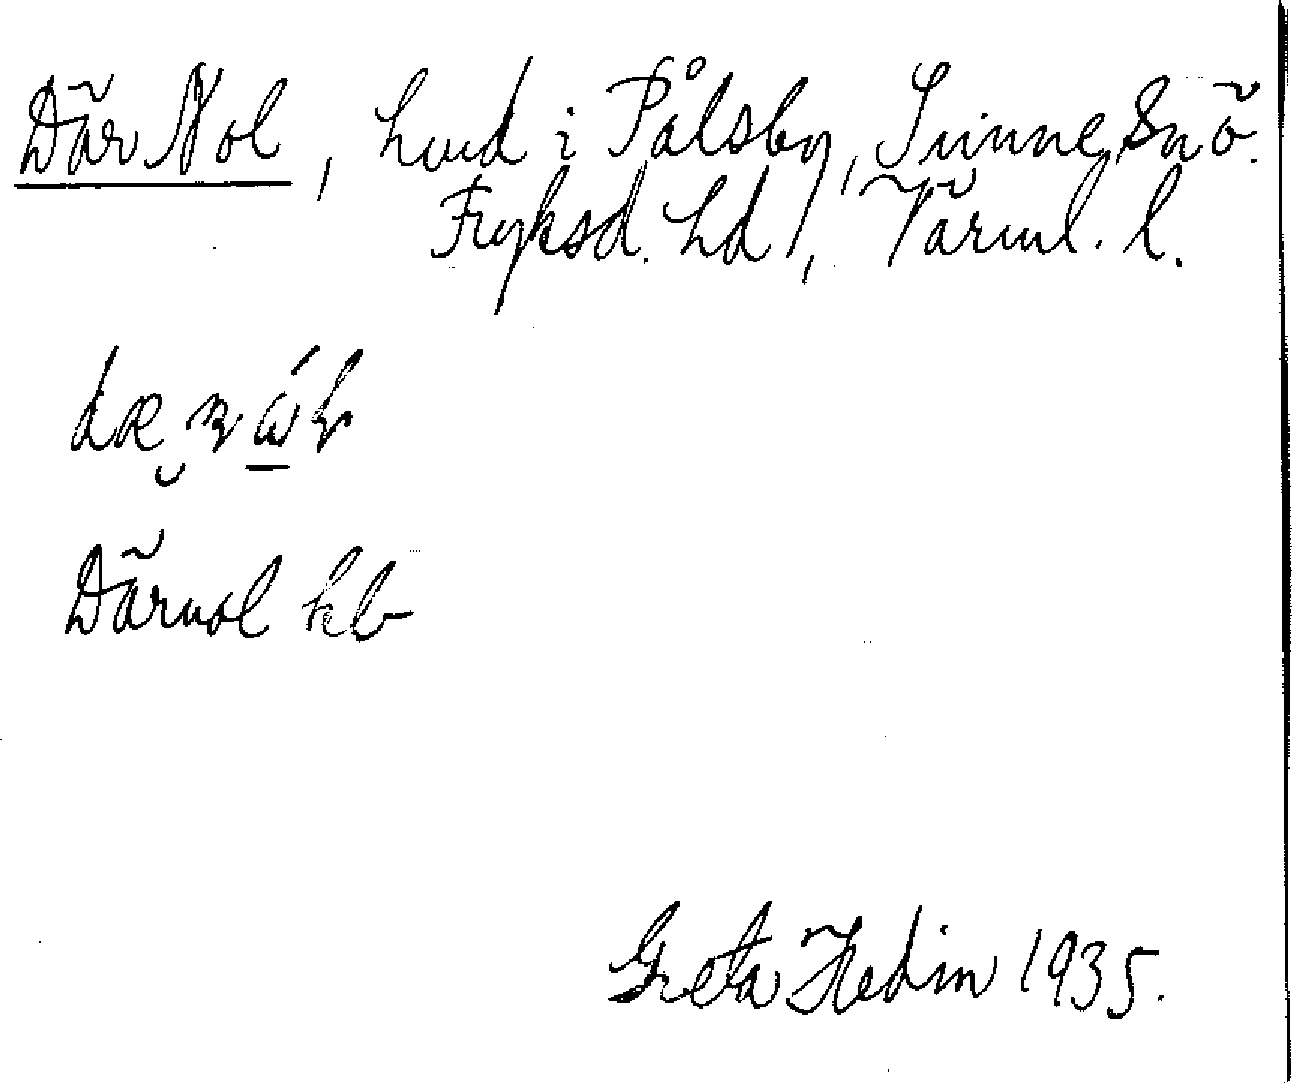 Där Nol, hmd i Pålsby, Sunne, Snö.
Fryksd. hd, Värml. l.
Därnol hb
Greta Hedin 1935.